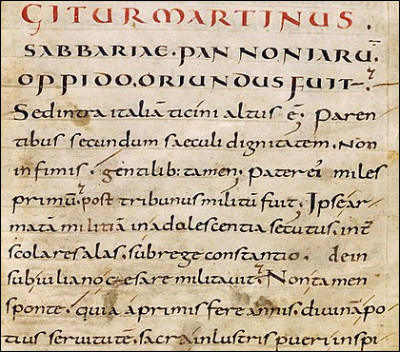 GITUR MARTINUS.
SABBARIAE. PANNONIARŪ.
OPPIDO. ORIUNDUS FUIT.
Sed intra italiā ticini altus ē. Paren
tibus secundum saeculi dignitatem. Non
infimis. gentilib: tamen. Pater ei miles
primū. post tribunus militū fuit. Ipse ar
matā militiā in adolescentia secutus. int
scolares alas. sub rege constantio. dein
sub iuliano cęsare militavit. Non tamen
sponte. quia a primis fere annis. divinā po
tius servitutē. sacra inlustris pueri inspi